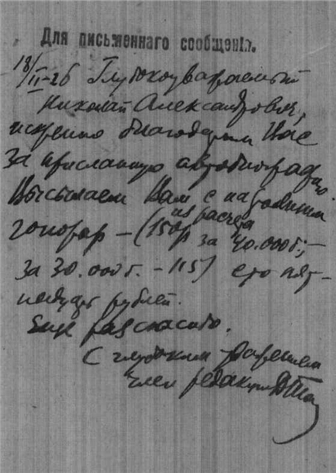 Для письменнаго сообщенія.
18/II-26 Глубокоуважаемый
Николай Александрович,
искренно благодарим Вас
за присланную автобиографию.
Высылаем Вам с
из расчета
гонорар – (150р за 40.000б.,–
за 30.000б. – 115) сто пят-
надцать рублей.
Еще раз спасибо.
С глубоким уважением
член редакции